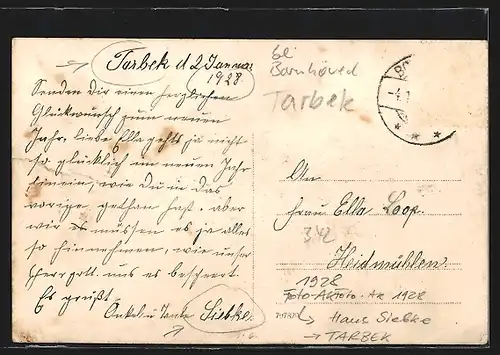 Tarbek d 2 Januar
1928
Senden Dir einen herzlichen
Glükwunsch zum neuen
Jahr, liebe Ella gehts ja nicht
so glücklich im neuen Jahr
hinein, wie Du in das
vorige gethan hast. aber
wir müssen es ja alles
so hinnehmen, wie unser
Herrgott uns es beschert
Es grüßt
Onkel u Tante Siebke.
bei
Bornhöved
Tarbek
An
Frau Ella Loop.
342
Heidmühlen
1928
Foto-AK Foto-AK 1928
Haus Siebke
→ TARBEK